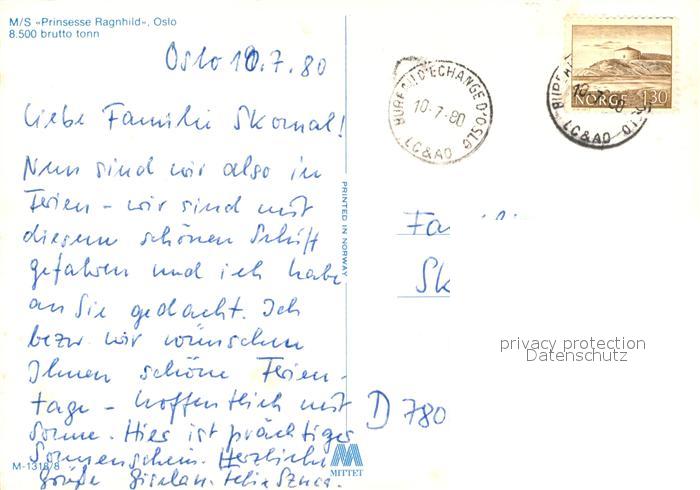 M/S «Prinsesse Ragnhild», Oslo
8.500 brutto tonn
Oslo 10.7.80
Liebe Familie Skomal!
Nun sind wir also in
Ferien - wir sind mit
diesem schönen Schiff
gefahren und ich habe
an Sie gedacht. Ich
bezw. wir wünschen
Ihnen schöne Ferien-
tage - hoffentlich mit
Sonne. Hier ist prächtiger
Sonnenschein. Herzliche
Grüße
M-1318/8
PRINTED IN NORWAY
MITTET
BUREAU D'ECHANGE D'OSLO
10-7-80
LC&AO
NORGE 130
10-7-80
LC&AO
Fa
Sk
D 780
privacy protection
Datenschutz